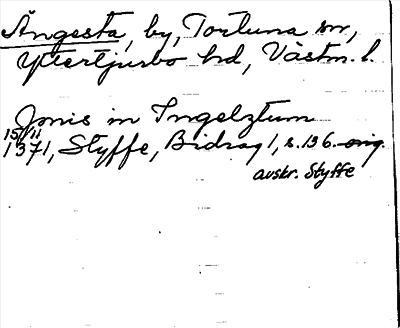 Ängesta, by, Tortuna sn,
Yttertjurbo hd, Västm. l.
Jonis in Ingelztum
15/11
1371, Styffe, Bidrag 1, s. 136. orig.
avskr. Styffe